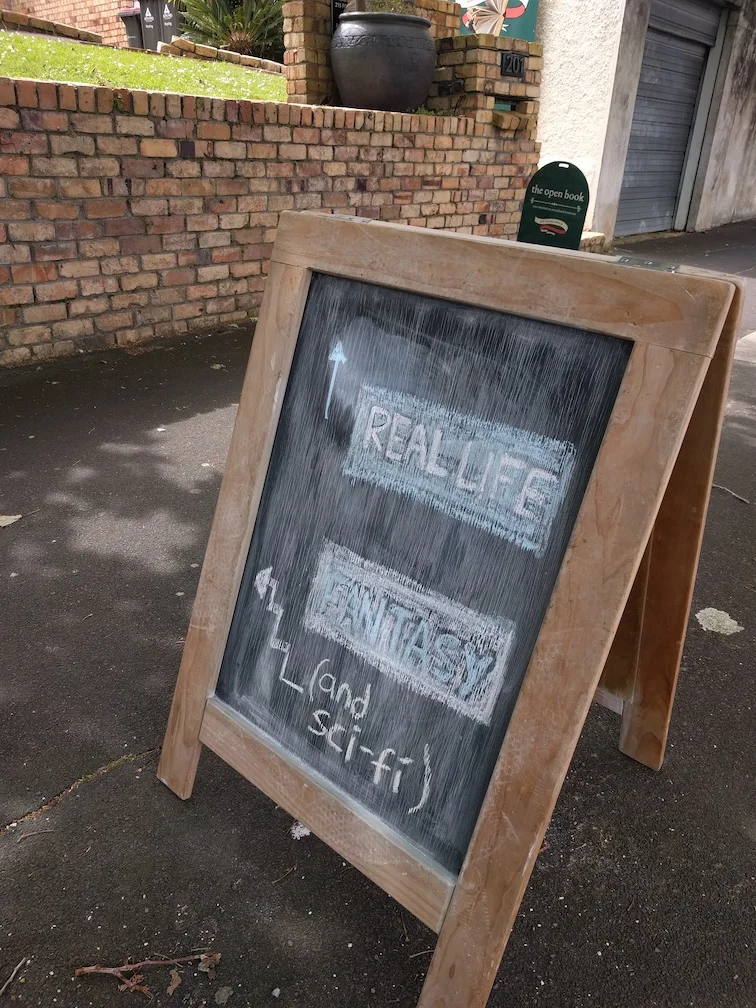 201
the open book
REAL LIFE
FANTASY
(and
sci-fi)